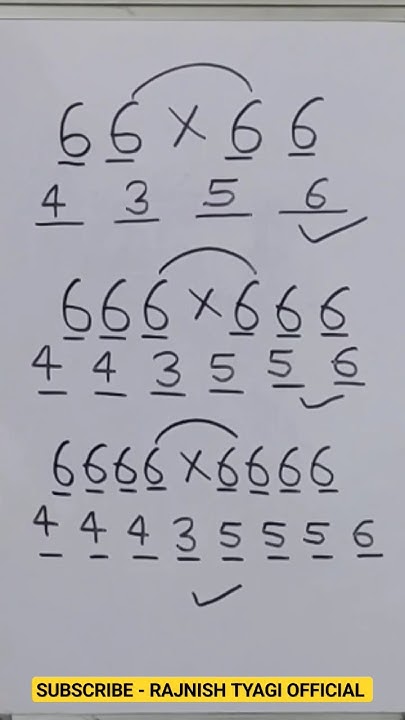 66 × 66
4 3 5 6
666 × 666
4 4 3 5 5 6
6666 × 6666
4 4 4 3 5 5 5 6
SUBSCRIBE - RAJNISH TYAGI OFFICIAL